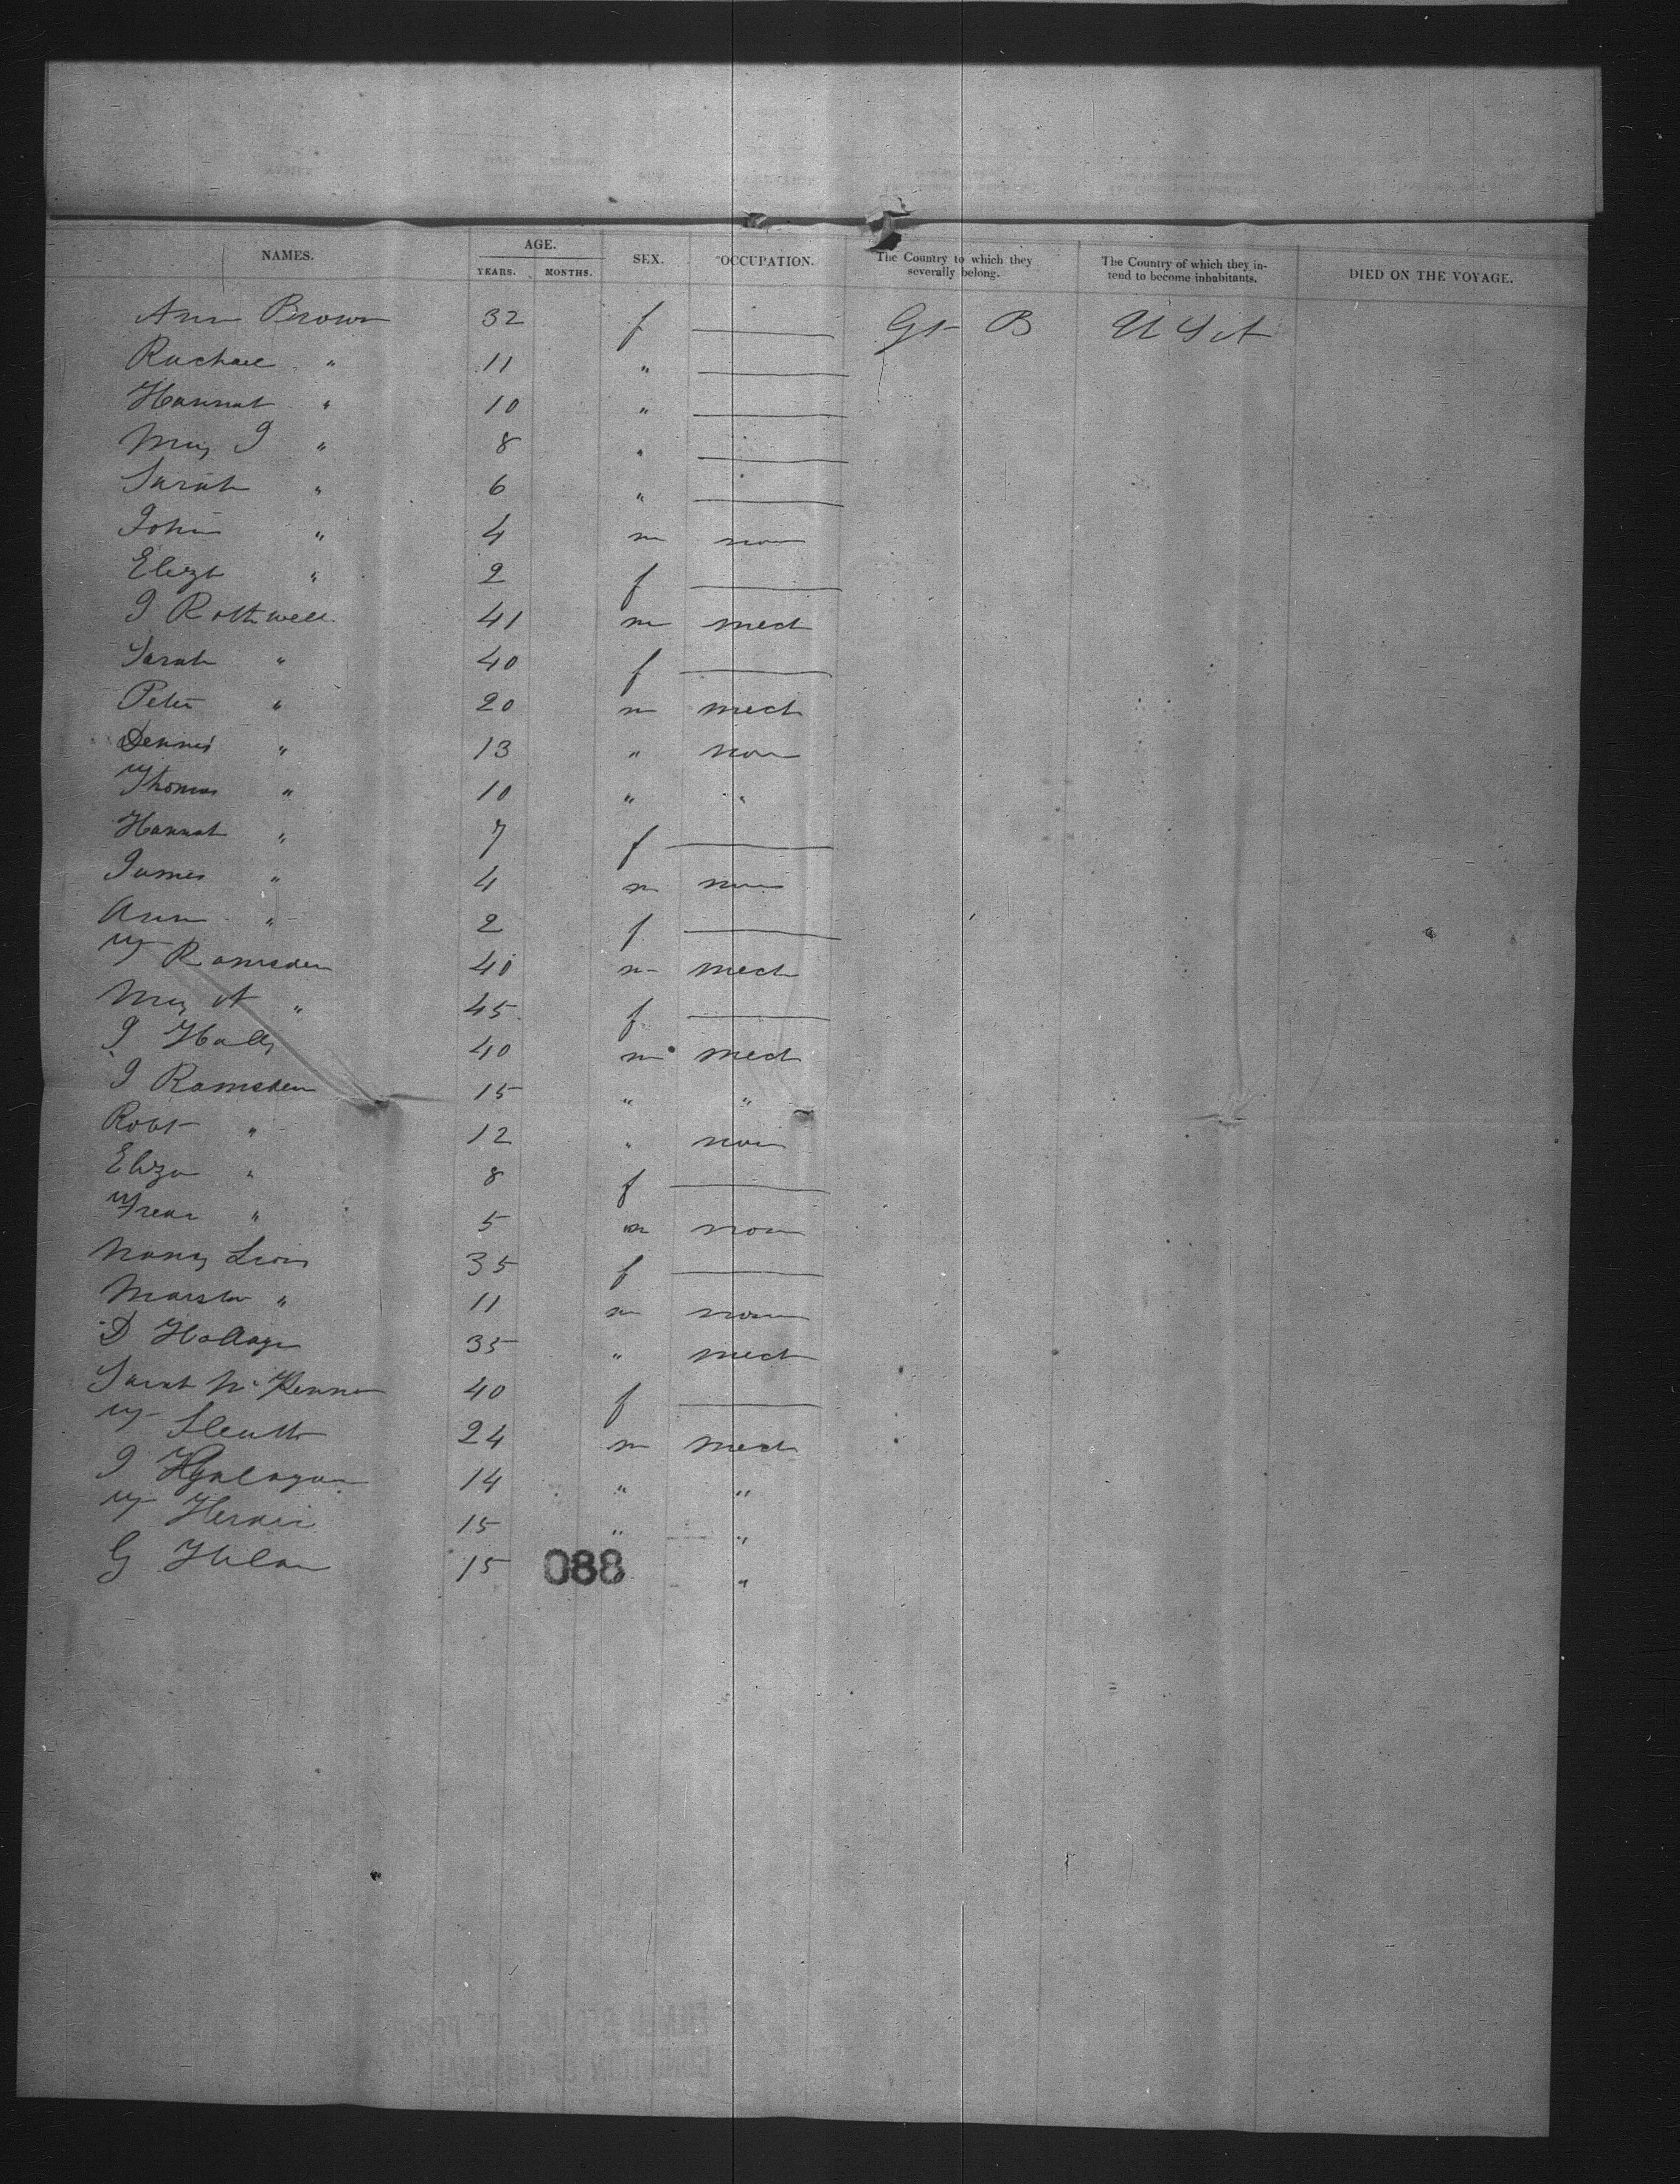 NAMES. AGE. YEARS. MONTHS. SEX. OCCUPATION. The Country to which they severally belong. The Country of which they intend to become inhabitants. DIED ON THE VOYAGE.
Ann Brown 32 f — Gt B U S A
Rachael " 11 " —
Hannah " 10 " —
Mary J " 8 " —
Sarah " 6 " —
John " 4 m non
Elizt " 2 f —
J Rothwell 41 m mech
Sarah " 40 f —
Peter " 20 m mech
Dennis " 13 " non
Thomas " 10 " "
Hannah " 7 f —
James " 4 m non
Ann " 2 f —
Wm Ramsden 40 m mech
Mary A " 45 f —
J 40 m mech
J Ramsden 15 " "
Robt " 12 " non
Eliza " 8 f —
" 5 m non
Nancy 35 f —
" 11 m non
D 35 " mech
Sarah 40 f —
Wm 24 m mech
J 14 " "
Wm 15 " "
G 15 "
088